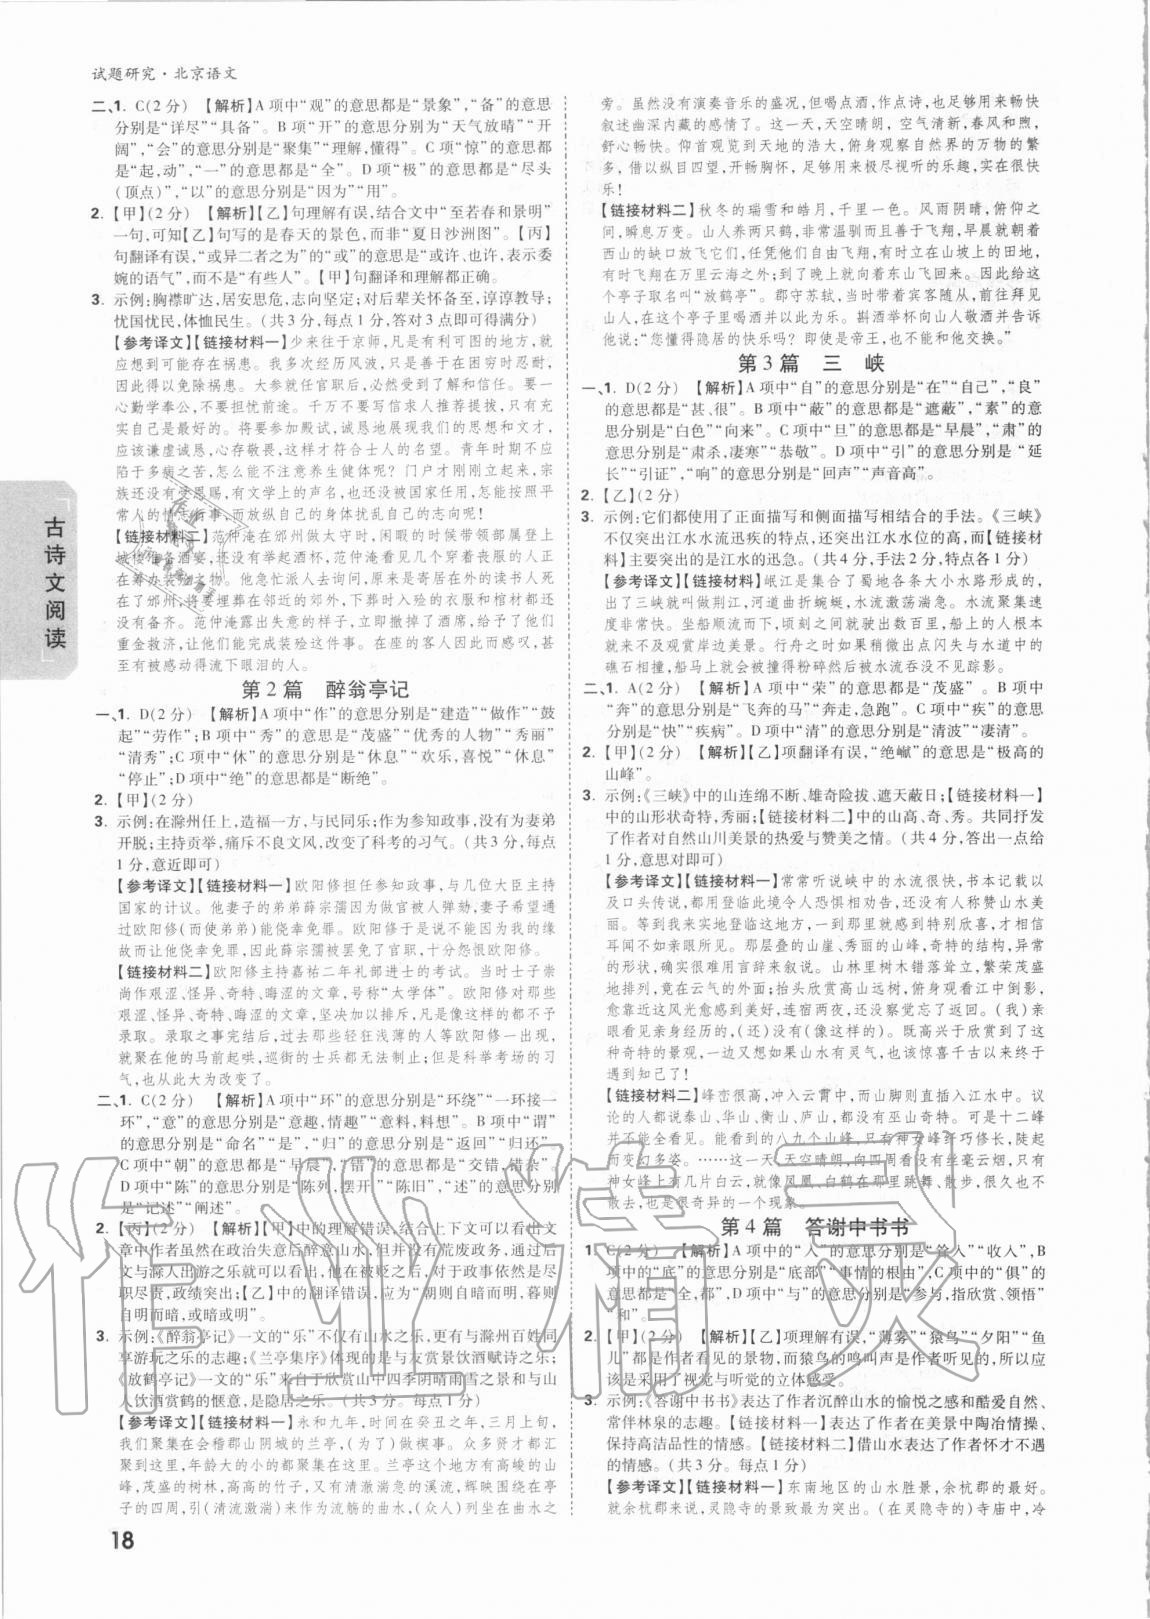 试题研究·北京语文
二、1. C(2分) 【解析】A项中“观”的意思都是“景象”,“备”的意思
分别是“详尽”“具备”。B项“开”的意思分别为“天气放晴”“开
阔”,“会”的意思分别是“聚集”“理解,懂得”。C项“惊”的意思都
是“起,动”,“一”的意思都是“全”。D项“极”的意思都是“尽头
(顶点)”,“以”的意思分别是“因为”“用”。
2. 【甲】(2分) 【解析】【乙】句理解有误,结合文中“至若春和景明”
一句,可知【乙】句写的是春天的景色,而非“夏日沙洲图”。【丙】
句翻译有误,“或异二者之为”的“或”的意思是“或许、也许,表示委
婉的语气”,而不是“有些人”。【甲】句翻译和理解都正确。
3. 示例:胸襟旷达,居安思危,志向坚定;对后辈关怀备至,谆谆教导;
忧国忧民,体恤民生。(共3分,每点1分,答对3点即可得满分)
【参考译文】【链接材料一】少来往于京师,凡是有利可图的地方,就
应想到可能存在祸患。我多次经历风波,只是善于在困穷时忍耐,
因此得以免除祸患。大参就任官职后,必能受到了解和信任。要一
心勤学奉公,不用发愁前途。千万不要写信求人推荐提拔,只有求
自己是最好的。将要参加殿试,诚恳地展现我们的思想和文才,
应该谦虚诚恳,心存敬畏,这样才符合士人的名望。青年时期不应
陷于多病之苦,怎么能不注意养生健体呢?门户才刚刚立起来,宗
族还没有受恩赐,有文学上的声名,也还没被国家任用,怎能按照平
常人的情志行事,而放纵自己的身体扰乱自己的志向呢!
【链接材料二】范仲淹在邠州太守时,闲暇的时候带领部属登上
城楼准备酒宴,还没有举起酒杯,范仲淹看到几个穿着丧服的人正
在筹办装殓之物。他急忙派人去询问,原来是寄居在外的读书人死
在了邠州,将要埋葬在邻近的郊外,下葬时的衣服和棺材都还
没有备齐。范仲淹露出失意的样子,马上撤了酒席,给予了他们
重金救济,让他们完成装殓这件事。在座的客人因此而感叹,
还有被感动得流下眼泪的人。
第2篇 醉翁亭记
一、1. D(2分) 【解析】A项中“作”的意思分别是“建造”“做作”“鼓
起”“劳作”;B项中“秀”的意思是“茂盛”“优秀的人物”“秀丽”
“清秀”;C项中“休”的意思分别是“休息”“休息”“欢乐,喜悦”“休息”
“停止”;D项中“绝”的意思都是“断绝”。
2. 【甲】(2分)
3. 示例:在滁州任上,造福一方,与民同乐;作为参知政事,没有为妻弟
开脱;主持贡举,痛斥不良文风,改变了科考的习气。(共3分,每点
1分,意近即可)
【参考译文】【链接材料一】欧阳修担任参知政事,与几位大臣主持
国家的计议。他妻子的弟弟薛宗孺因为做官被人弹劾,妻子希望通过
欧阳修(而使弟弟)能侥幸免罪。欧阳修于是说不能因为我的缘
故而让他侥幸免罪,因此薛宗孺被罢免了官职,十分怨恨欧阳修。
【链接材料二】欧阳修主持嘉祐二年礼部进士的考试。当时士子崇
尚作艰涩、怪异、奇特、晦涩的文章,号称“太学体”。欧阳修对那
些艰涩、怪异、奇特、晦涩的文章,坚决加以排斥,凡像这样的都不予
录取。录取之事完结后,过去那些轻狂浅薄的人等欧阳修一出现,
就聚在他的马前起哄,巡街的士兵都无法制止;但是科举考场的习
气,也从此大为改变了。
二、1. C(2分) 【解析】A项中“环”的意思是“环绕”“一环接一
环”,“意”的意思分别是“意趣,情趣”“意料,料想”。B项中“谓”
的意思分别是“命名”“是”,“归”的意思分别是“返回”“归还”。
C项中“朝”的意思都是“早晨”,“错”的意思都是“交错,错杂”。
D项中“陈”的意思分别是“陈列,摆开”“陈旧”,“述”的意思分别
是“记述”“阐述”。
2. 【丙】(2分) 【解析】【甲】中的理解错误,结合上下文可以看出文
章中作者虽然在政治失意后醉意山水,但并没有荒废政务。通过
文中与滁人出游之乐的描写可看出,他在被贬之后,对政事依然是尽
职尽责,政绩突出;【乙】中的翻译错误,应为“朝则自暗而明,暮则
自明而暗,或暗或明”。
3. 示例:《醉翁亭记》一文的“乐”不仅有山水之乐,更有与滁州百姓同
享游玩之乐的志趣;《兰亭集序》体现的是与友赏景饮酒赋诗之乐;
《放鹤亭记》一文的“乐”来自于欣赏山中四季阴晴雨雪之景与山
人饮酒赏鹤的惬意,是归隐之乐。(共3分,每点1分)
【参考译文】【链接材料一】永和九年,时间在癸丑之年,三月上旬,
我们聚集在会稽郡山阴城的兰亭,为了做禊事。众多贤才都汇聚
到这里,年龄大的小的都聚集在这里。兰亭这个地方有高峻的山
岭,茂盛的树林,高高的竹子,又有清澈激湍的溪流,辉映环绕在亭
子的四周,引(清流激湍)来作为流觞的曲水,(众人)列坐在曲水
旁。虽然没有演奏音乐的盛况,但喝点酒,作点诗,也足够用来畅快
叙述幽深内藏的感情了。这一天,天空晴朗,空气清新,春风和煦,
舒心畅快。仰首观览到天地的浩大,俯身观察自然界的万物的繁
多,借以纵目四望,开畅胸怀,足够用来极尽视听的乐趣,实在很快
乐!
【链接材料二】秋冬的瑞雪和皓月,千里一色。风雨阴晴,俯仰之
间,瞬息万变。山人养两只鹤,非常温驯而且善于飞翔,早晨就朝着
西山的缺口放飞它们,任凭它们自由飞翔,有时立在山坡上的田地,
有时飞翔在万里云海之外;到了晚上就向着东山飞回来。因此给这
个亭子取名叫“放鹤亭”。郡守苏轼,当时带着宾客随从,前往拜见
山人,在这个亭子里喝酒并以此为乐。斟酒举杯向山人敬酒并告诉
他说:“您懂得隐居的快乐吗?即使是帝王,也不能和他交换。”
第3篇 三峡
一、1. D(2分) 【解析】A项中“自”的意思分别是“在”“自己”,“良”
的意思都是“甚、很”。B项中“蔽”的意思是“遮蔽”,“素”的意
思分别是“白色”“向来”。C项中“旦”的意思都是“早晨”,“肃”的意
思分别是“肃杀,凄寒”“恭敬”。D项中“引”的意思分别是“延
长”“引证”,“响”的意思分别是“回声”“声音高”。
2. 【乙】(2分)
3. 示例:它们都使用了正面描写和侧面描写相结合的手法。《三峡》
不仅突出江水水流迅疾的特点,还突出江水水位的高,而【链接材
料】主要突出的是江水的迅急。(共4分,手法2分,特点各1分)
【参考译文】【链接材料】岷江是集合了蜀地各条大小水路形成的,
出了三峡就叫做荆江,河道曲折蜿蜒,水流激荡湍急。水流聚集速
度非常快。坐船顺流而下,顷刻之间就驶出数百里,船上的人根本
就来不及观赏岸边美景。行舟之时如果稍微出点闪失与水道中的
礁石相撞,船马上就已经撞得粉碎然后被水流吞没不见踪影。
二、1. A(2分) 【解析】A项中“荣”的意思都是“茂盛”。B项中
“奔”的意思分别为“飞奔的马”“奔走,急跑”。C项中“疾”的意思分
别是“快”“疾病”。D项中“清”的意思分别为“清波”“凄清”。
2. 【甲】(2分) 【解析】【乙】项翻译有误,“绝巘”的意思是“极高的
山峰”。
3. 示例:《三峡》中的山连绵不断、雄奇险拔、遮天蔽日;【链接材料一】
中的山形状奇特,秀丽;【链接材料二】中的山高、奇、秀。共同抒发
了作者对自然山川美景的热爱与赞美之情。(共4分,答出一点给
1分,意思对即可)
【参考译文】【链接材料一】常常听说峡中的水流很快,书本记载以
及口头传说,都用登临此境令人恐惧相劝告,还没有人称赞山水美
丽。等到今天我来到这地方,一到那里就感到特别欣喜,才相信
耳闻不如亲眼所见。那层叠的山崖,秀丽的山峰,奇特的结构,异常
的形状,确实难以用言辞来叙说。山林里树木错落耸立,繁荣茂盛
地排列,竟在云气的外面;抬头欣赏高山远树,俯身观看江中倒影,
愈靠近这风光愈感到美好,连宿两夜,还没察觉忘记了返回。(我)亲
眼看见亲身经历的,(还)没有(像这样的)。既高兴欣赏到了这
种奇特的景观,又一想如果山水有灵气,也该惊喜千古以来终于
遇到了知己了!
【链接材料二】峰峦很高,冲入云霄中,而山脚则直插入江水中。议
论的人都说泰山、华山、衡山、庐山,都没有巫山奇特。可是十二峰
并不能全看见。能看到的八九个山峰,只有神女峰纤巧修长,陡起
而变幻多姿。……这一天,天空晴朗,向四周看没有丝毫云烟,只有
神女峰上有几片白云,就像凤凰、白鹤在那里跳舞、散步,很久也不
散去,也是很奇异的一个现象。
第4篇 答谢中书书
1. C(2分) 【解析】A项中的“人”的意思分别是“答人”“收人”,B
项中的“底”的意思分别为“底部”“事情的根由”,C项中的“俱”的
意思都是“全,都”,D项中“与”的意思分别是“参与,指欣赏、领悟”
“和”。
2. 【甲】(2分) 【解析】【乙】项理解有误,“薄雾”“猿鸟”“夕阳”“鱼
儿”都可看作是看见的景物,而猿鸟的鸣叫声是听见的,所以应
该是采用了视觉与听觉的立体感受。
3. 示例:《答谢中书书》表达了作者沉醉山水的愉悦之感和酷爱自然、
常伴林泉的志趣。【链接材料一】表达了作者在美景中陶冶情操、
保持高洁品性的情感。【链接材料二】借山水表达了作者怀才不遇
的情感。(共3分。每点1分)
【参考译文】【链接材料一】东南地区的山水胜景,余杭郡的最好;
就余杭郡来说,灵隐寺的景致最为突出。(在灵隐寺的)寺庙中,冷
古诗文阅读
18
作业精灵